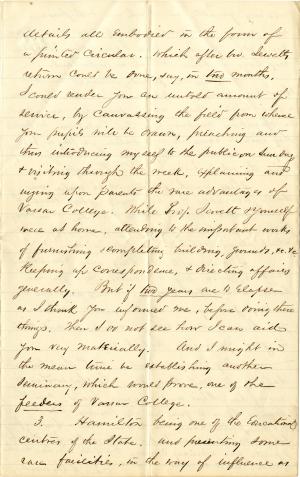 details all embodied in the form of
a printed Circular. Which after Mr. Jewetts
return could be done, say, in two months,
I could render you an untold amount of
service, by canvassing the field from where
your pupils will be drawn, preaching and
thus introducing myself to the public on Sunday
& visiting through the week, explaining and
urging upon parents the rare advantages of
Vassar College. While Prof. Jewett & yourself
were at home, attending to the important works
of furnishing & completing building, grounds, &c &c
Keeping up correspondence, & directing affairs
generally. But if two years are to elapse
as I think you informed me, before doing these
things. Then I do not see how I can aid
you very materially. And I might in
the mean time be establishing another
Seminary, which would prove, one of the
feeders of Vassar College.
3. Hamilton being one of the Educational
centres of the State. and presenting some
rare facilities, in the way of influence as